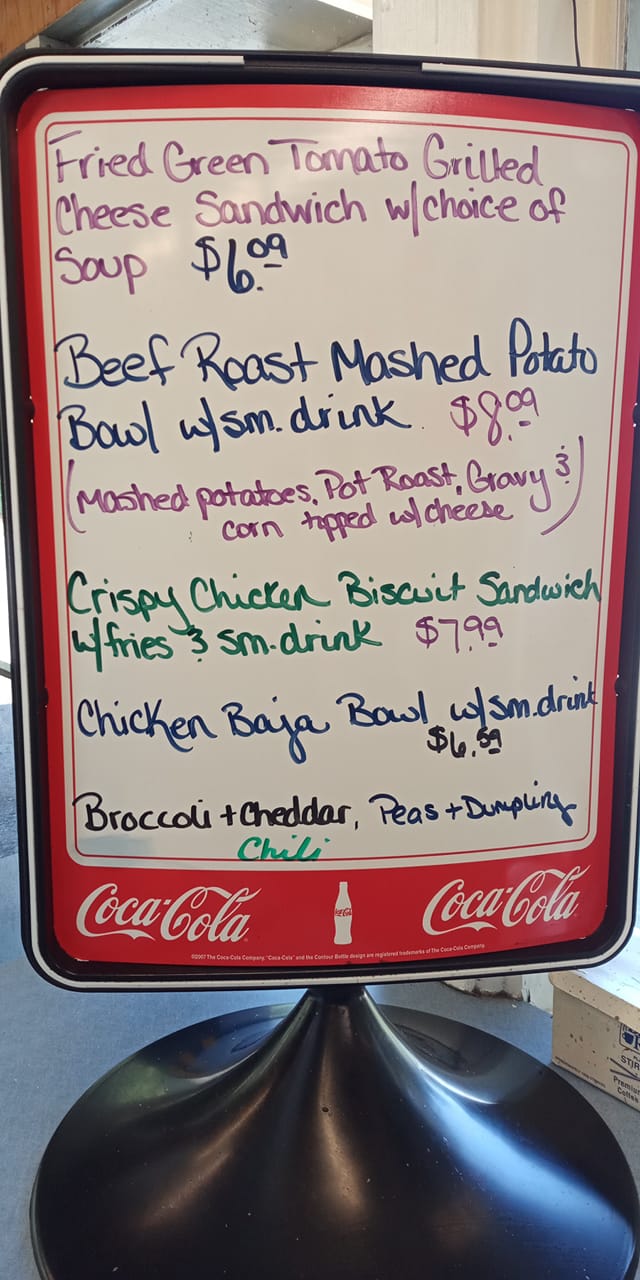 Fried Green Tomato Grilled
Cheese Sandwich w/choice of
Soup $6.09
Beef Roast Mashed Potato
Bowl w/sm. drink. $8.09
(Mashed potatoes, Pot Roast, Gravy &
corn topped w/cheese)
Crispy Chicken Biscuit Sandwich
w/fries & sm. drink $7.99
Chicken Baja Bowl w/sm. drink
$6.59
Broccoli + Cheddar, Peas + Dumpling
Chili
Coca-Cola Coca-Cola Coca-Cola
©2007 The Coca-Cola Company. "Coca-Cola" and the Contour Bottle design are registered trademarks of The Coca-Cola Company.
STIR
Premium
Coffee